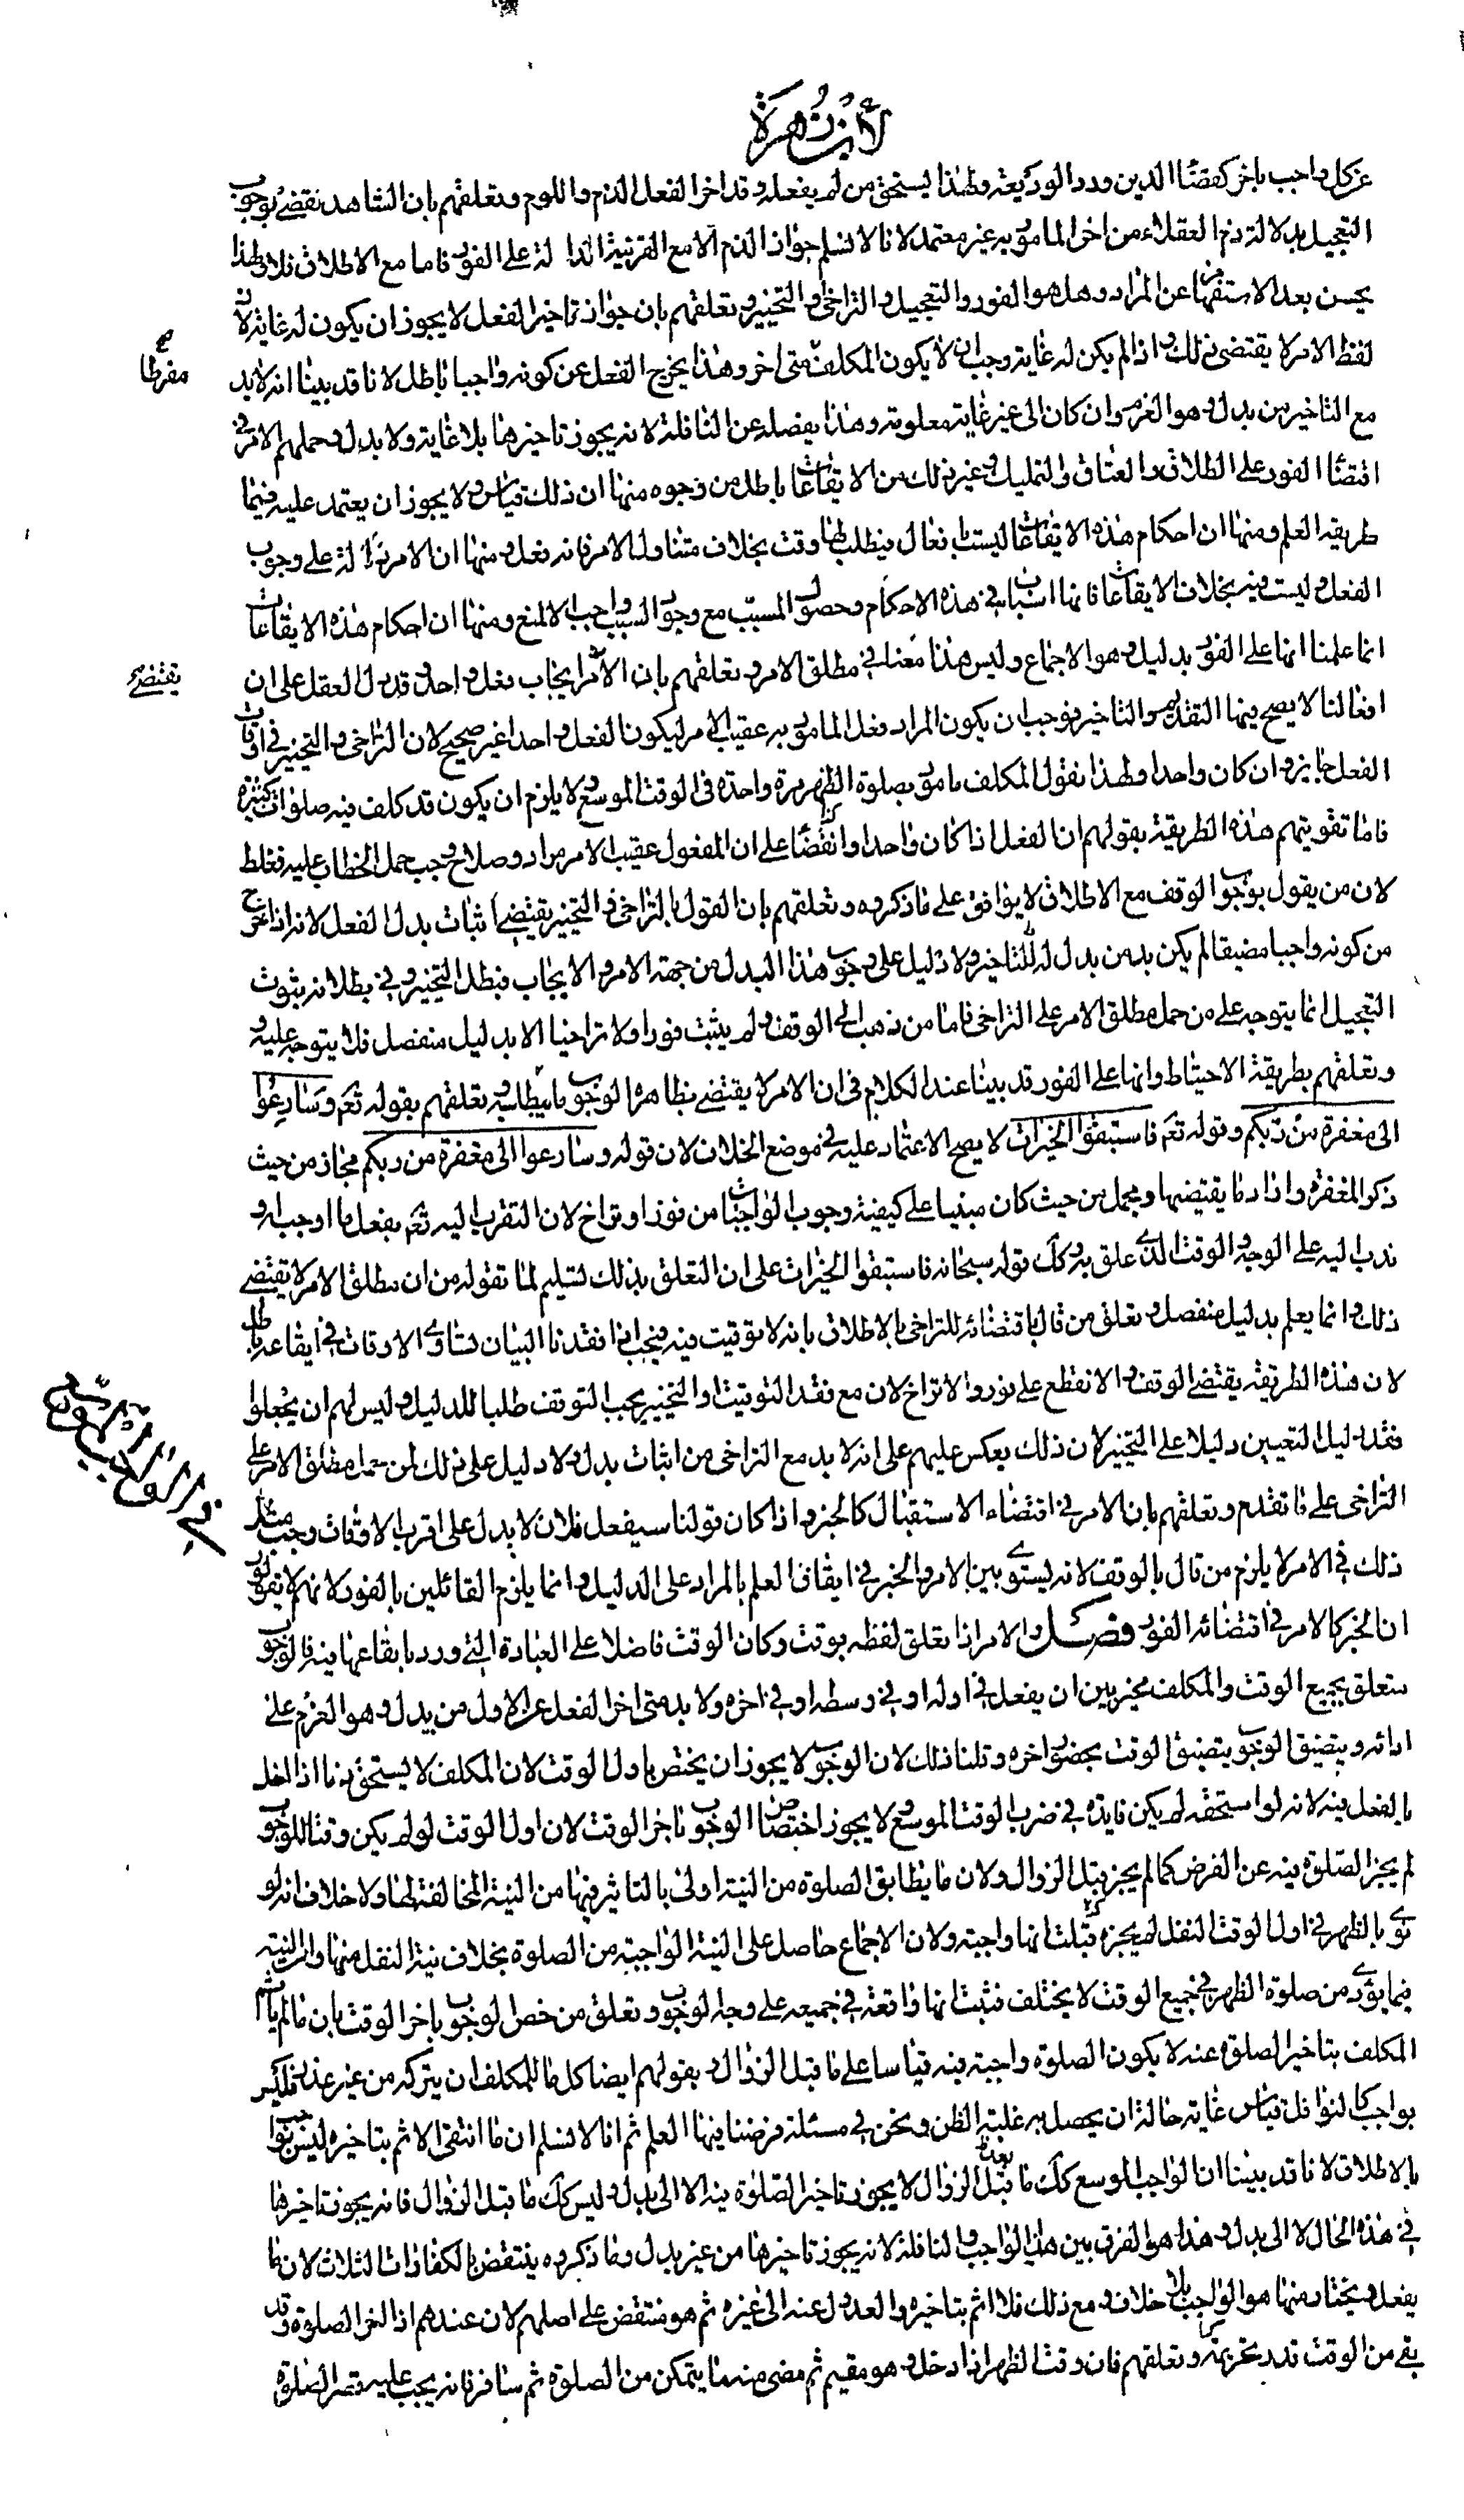 لابن زهرة
عن كل واجب باخر كقضاء الدين ورد الوديعة ولهذا يستحق من لم يفعله وقد اخر الفعل الذم واللوم وتعلقهم بان الشاهد يقضى بوجوب
التعجيل بدلالة ذم العقلاء من اخر المامور به غير معتمد لانا لا نسلم جواز الذم الا مع القرينة الدالة على الفور فاما مع الاطلاق فلا ولهذا
يحسن بعد الاستفهام عن المراد وهل هو الفور والتعجيل والتراخى والتخيير وتعلقهم بان جواز تاخير الفعل لا يجوز ان يكون له غاية لان
لفظ الامر لا يقتضى ذلك واذا لم يكن له غاية وجب ان لا يكون المكلف متى اخر وهذا يخرج الفعل عن كونه واجبا باطل لانا قد بينا انه لا بد
مفرطا صح
مع التاخير من بدل وهو العزم وان كان الى غير غاية معلومة وهذا يفصله عن النافلة لانه يجوز تاخيرها بلا غاية ولا بدل وحملهم الامر فى
اقتضاء الفور على الطلاق والعتاق والتمليك وغير ذلك من الايقاعات باطل من وجوه منها ان ذلك قياس ولا يجوز ان يعتمد عليه فيما
طريقه العلم ومنها ان احكام هذه الايقاعات ليست بافعال فيطلب لها وقت بخلاف متناول الامر فانه فعل ومنها ان الامر دلالة على وجوب
الفعل وليست فيه بخلاف الايقاعات فانها اسباب فى هذه الاحكام وحصول المسبب مع وجود السبب واجب الا لمنع ومنها ان احكام هذه الايقاعات
انما علمنا انها على الفور بدليل وهو الاجماع وليس هذا معنا فى مطلق الامر وتعلقهم بان الامر ايجاب فعل واحد وقد دل العقل على ان
يقتضى
افعالنا لا يصح فيها التقديم والتاخير فوجب ان يكون المراد فعل المامور به عقيب الامر ليكون الفعل واحدا غير صحيح لان التراخى والتخيير فى اوقات
الفعل جايز وان كان واحدا ولهذا نقول المكلف مامور بصلوة الظهر مرة واحدة فى الوقت الموسع ولا يلزم ان يكون قد كلف فيه صلوات كثيرة
فاما تقويتهم هذه الطريقة بقولهم ان الفعل اذا كان واحدا واتفقنا على ان المفعول عقيب الامر مراد وصلاح وجب حمل الخطاب عليه فغلط
لان من يقول بوجوب الوقف مع الاطلاق لا يوافق على ما ذكروه وتعلقهم بان القول بالتراخى والتخيير يقتضى اثبات بدل الفعل لانه اذا خرج
من كونه واجبا مضيقا لم يكن بد من بدل له للتاخير ولا دليل على وجوب هذا البدل من جهة الامر والايجاب فبطل التخيير وفى بطلانه ثبوت
التعجيل انما يتوجه على من حمل مطلق الامر على التراخى فاما من ذهب الى الوقف ولم يثبت فورا ولا تراخيا الا بدليل منفصل فلا يتوجه عليه
وتعلقهم بطريقة الاحتياط وانها على الفور قد بينا عند الكلام فى ان الامر لا يقتضى بظاهره الوجوب ما يبطله وتعلقهم بقوله تعم وسارعوا
الى مغفرة من ربكم وقوله تعم فاستبقوا الخيرات لا يصح الاعتماد عليه فى موضع الخلاف لان قوله وسارعوا الى مغفرة من ربكم مجاز من حيث
ذكر المغفرة واراد ما يقتضيها ومجمل من حيث كان مبنيا على كيفية وجوب الواجبات من فور او تراخ لان التقرب اليه تعم بفعل ما اوجب او
ندب اليه على الوجه والوقت الذى علق به وكك قوله سبحانه فاستبقوا الخيرات على ان التعلق بذلك تسليم لما نقوله من ان مطلق الامر لا يقتضى
ذلك وانما يعلم بدليل منفصل وتعلق من قال باقتضائه للتراخى بالاطلاق بانه لا توقيت فيه فيجب اذا فقدنا البيان تساوى الاوقات فى ايقاعه باطل
لان هذه الطريقة يقتضى الوقف والا نقطع على فور ولا تراخ لان مع فقد التوقيت والتخيير يجب التوقف طلبا للدليل وليس لهم ان يجعلوا
فقد دليل التعيين دليلا على التخيير لان ذلك يعكس عليهم على انه لا بد مع التراخى من اثبات بدل ولا دليل على ذلك لمن حمل مطلق الامر على
التراخى على ما تقدم وتعلقهم بان الامر فى اقتضاء الاستقبال كالخبر واذا كان قولنا سيفعل فلان لا يدل على اقرب الاوقات وجب مثل
ذلك فى الامر لا يلزم من قال بالوقف لانه يستوى بين الامر والخبر فى ايقاف العلم بالمراد على الدليل وانما يلزم القائلين بالفور لانهم لا يقولون
ان الخبر كالامر فى اقتضائه الفور فصل والامر اذا تعلق لفظه بوقت وكان الوقت فاضلا على العبادة التى ورد بايقاعها فيه فالوجوب
فى الواجب الموسع
متعلق بجميع الوقت والمكلف مخير بين ان يفعل فى اوله او فى وسطه او فى اخره ولا بد متى اخر الفعل عن الاول من بدل وهو العزم على
ادائه ويتضيق الوجوب بتضيق الوقت بحضور اخره وقلنا ذلك لان الوجوب لا يجوز ان يختص باول الوقت لان المكلف لا يستحق ذما اذا اخل
بالفعل فيه لانه لو استحقه لم يكن فايدة فى ضرب الوقت الموسع ولا يجوز اختصاص الوجوب باخر الوقت لان اول الوقت لو لم يكن وقتا للوجوب
لم يجز الصلوة فيه عن الفرض كما لم يجز قبل الزوال ولان ما يطابق الصلوة من النية اولى بالتاثير فيها من النية المخالفة لها ولا خلاف انه لو
نوى بالظهر فى اول الوقت النفل لم يجزه فثبت انها واجبة ولان الاجماع حاصل على النية الواجبة من الصلوة بخلاف نية النفل منها والنية
فيما يؤدى من صلوة الظهر فى جميع الوقت لا يختلف فثبت انها واقعة فى جميعه على وجه الوجوب وتعلق من خص الوجوب باخر الوقت بان ما لم ياثم
المكلف بتاخير الصلوة عنه لا يكون الصلوة واجبة فيه قياسا على ما قبل الزوال وبقولهم ايضا كل ما للمكلف ان يتركه من غير عذر فليس
بواجب كالنوافل قياس غاية حاله ان يحصل به غلبة الظن ونحن فى مسئلة فرضنا فيها العلم ثم انا لا نسلم ان ما انتفى الاثم بتاخيره ليس بواجب
بالاطلاق لانا قد بيننا ان الواجب الموسع كك ما بعد الزوال لا يجوز تاخير الصلوة فيه الا الى بدل وليس كك ما قبل الزوال فانه يجوز تاخيرها
فى هذه الحال لا الى بدل وهذا هو الفرق بين هذا الواجب والنافلة لانه يجوز تاخيرها من غير بدل وما ذكروه ينتقض بالكفارات الثلاث لان ما
يفعل ويختار منها هو الواجب بلا خلاف ومع ذلك فلا اثم بتاخيره والعدول عنه الى غيره ثم هو منتقض على اصلهم لان عندهم اذا اخر الصلوة وقد
بقى من الوقت قدر تحريمة وتعلقهم فان وقت الظهر اذا دخل وهو مقيم ثم مضى منه ما يتمكن من الصلوة ثم سافر فانه يجب عليه قصر الصلوة